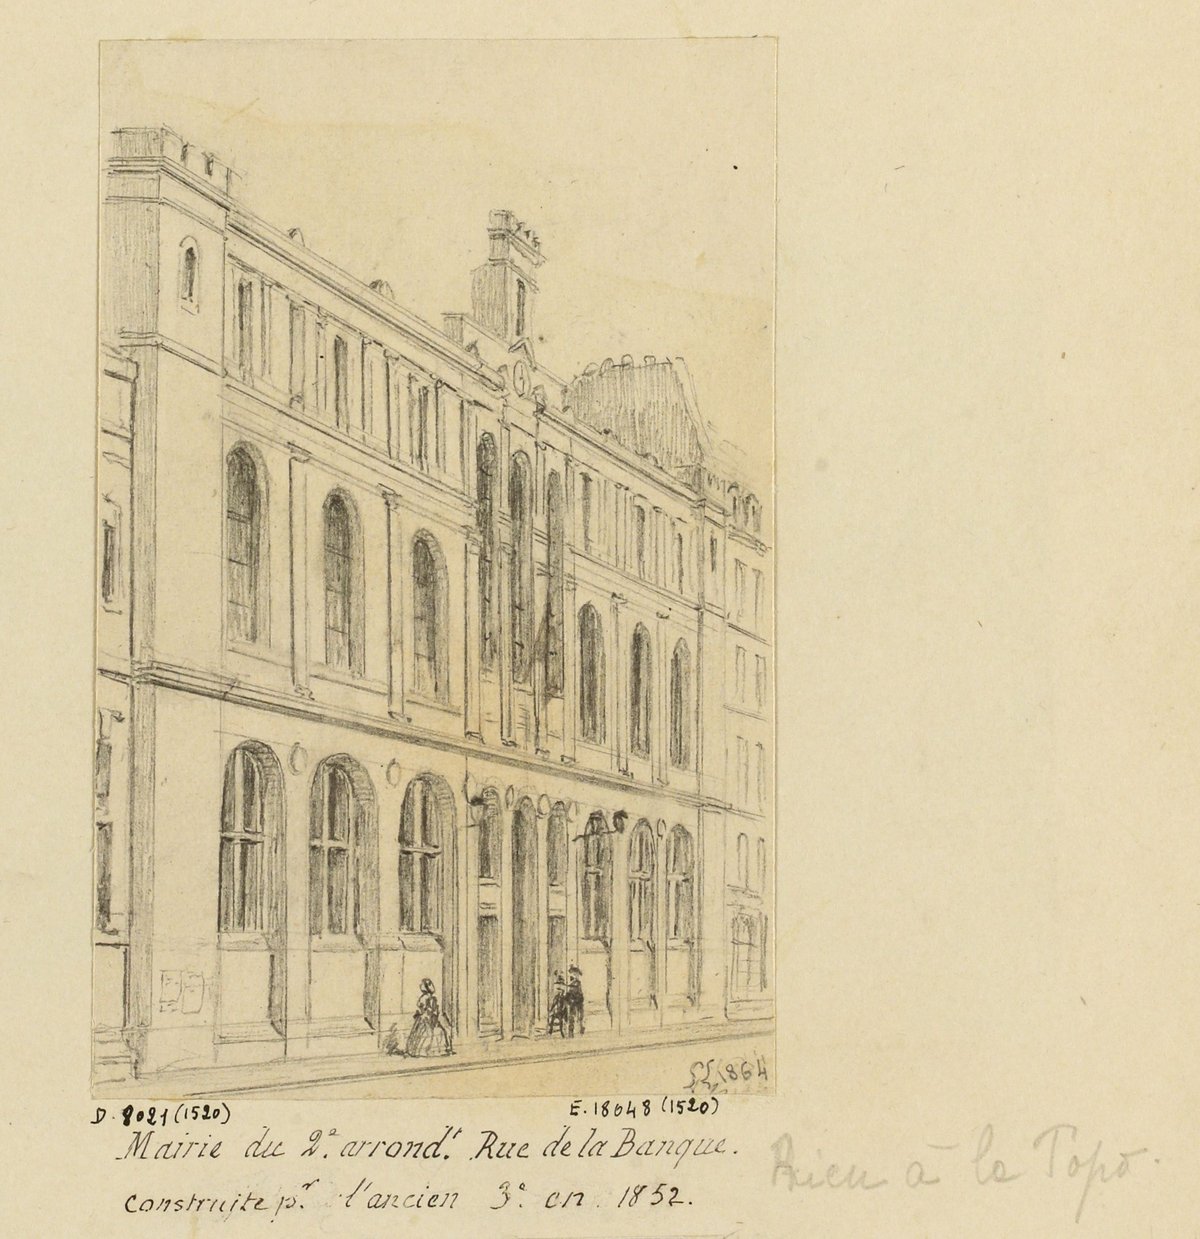 1864
D. 8021 (1520)
E. 18648 (1520)
Mairie du 2e arrondt. Rue de la Banque.
construite pr l'ancien 3e en 1852.
Rien à la Topo.